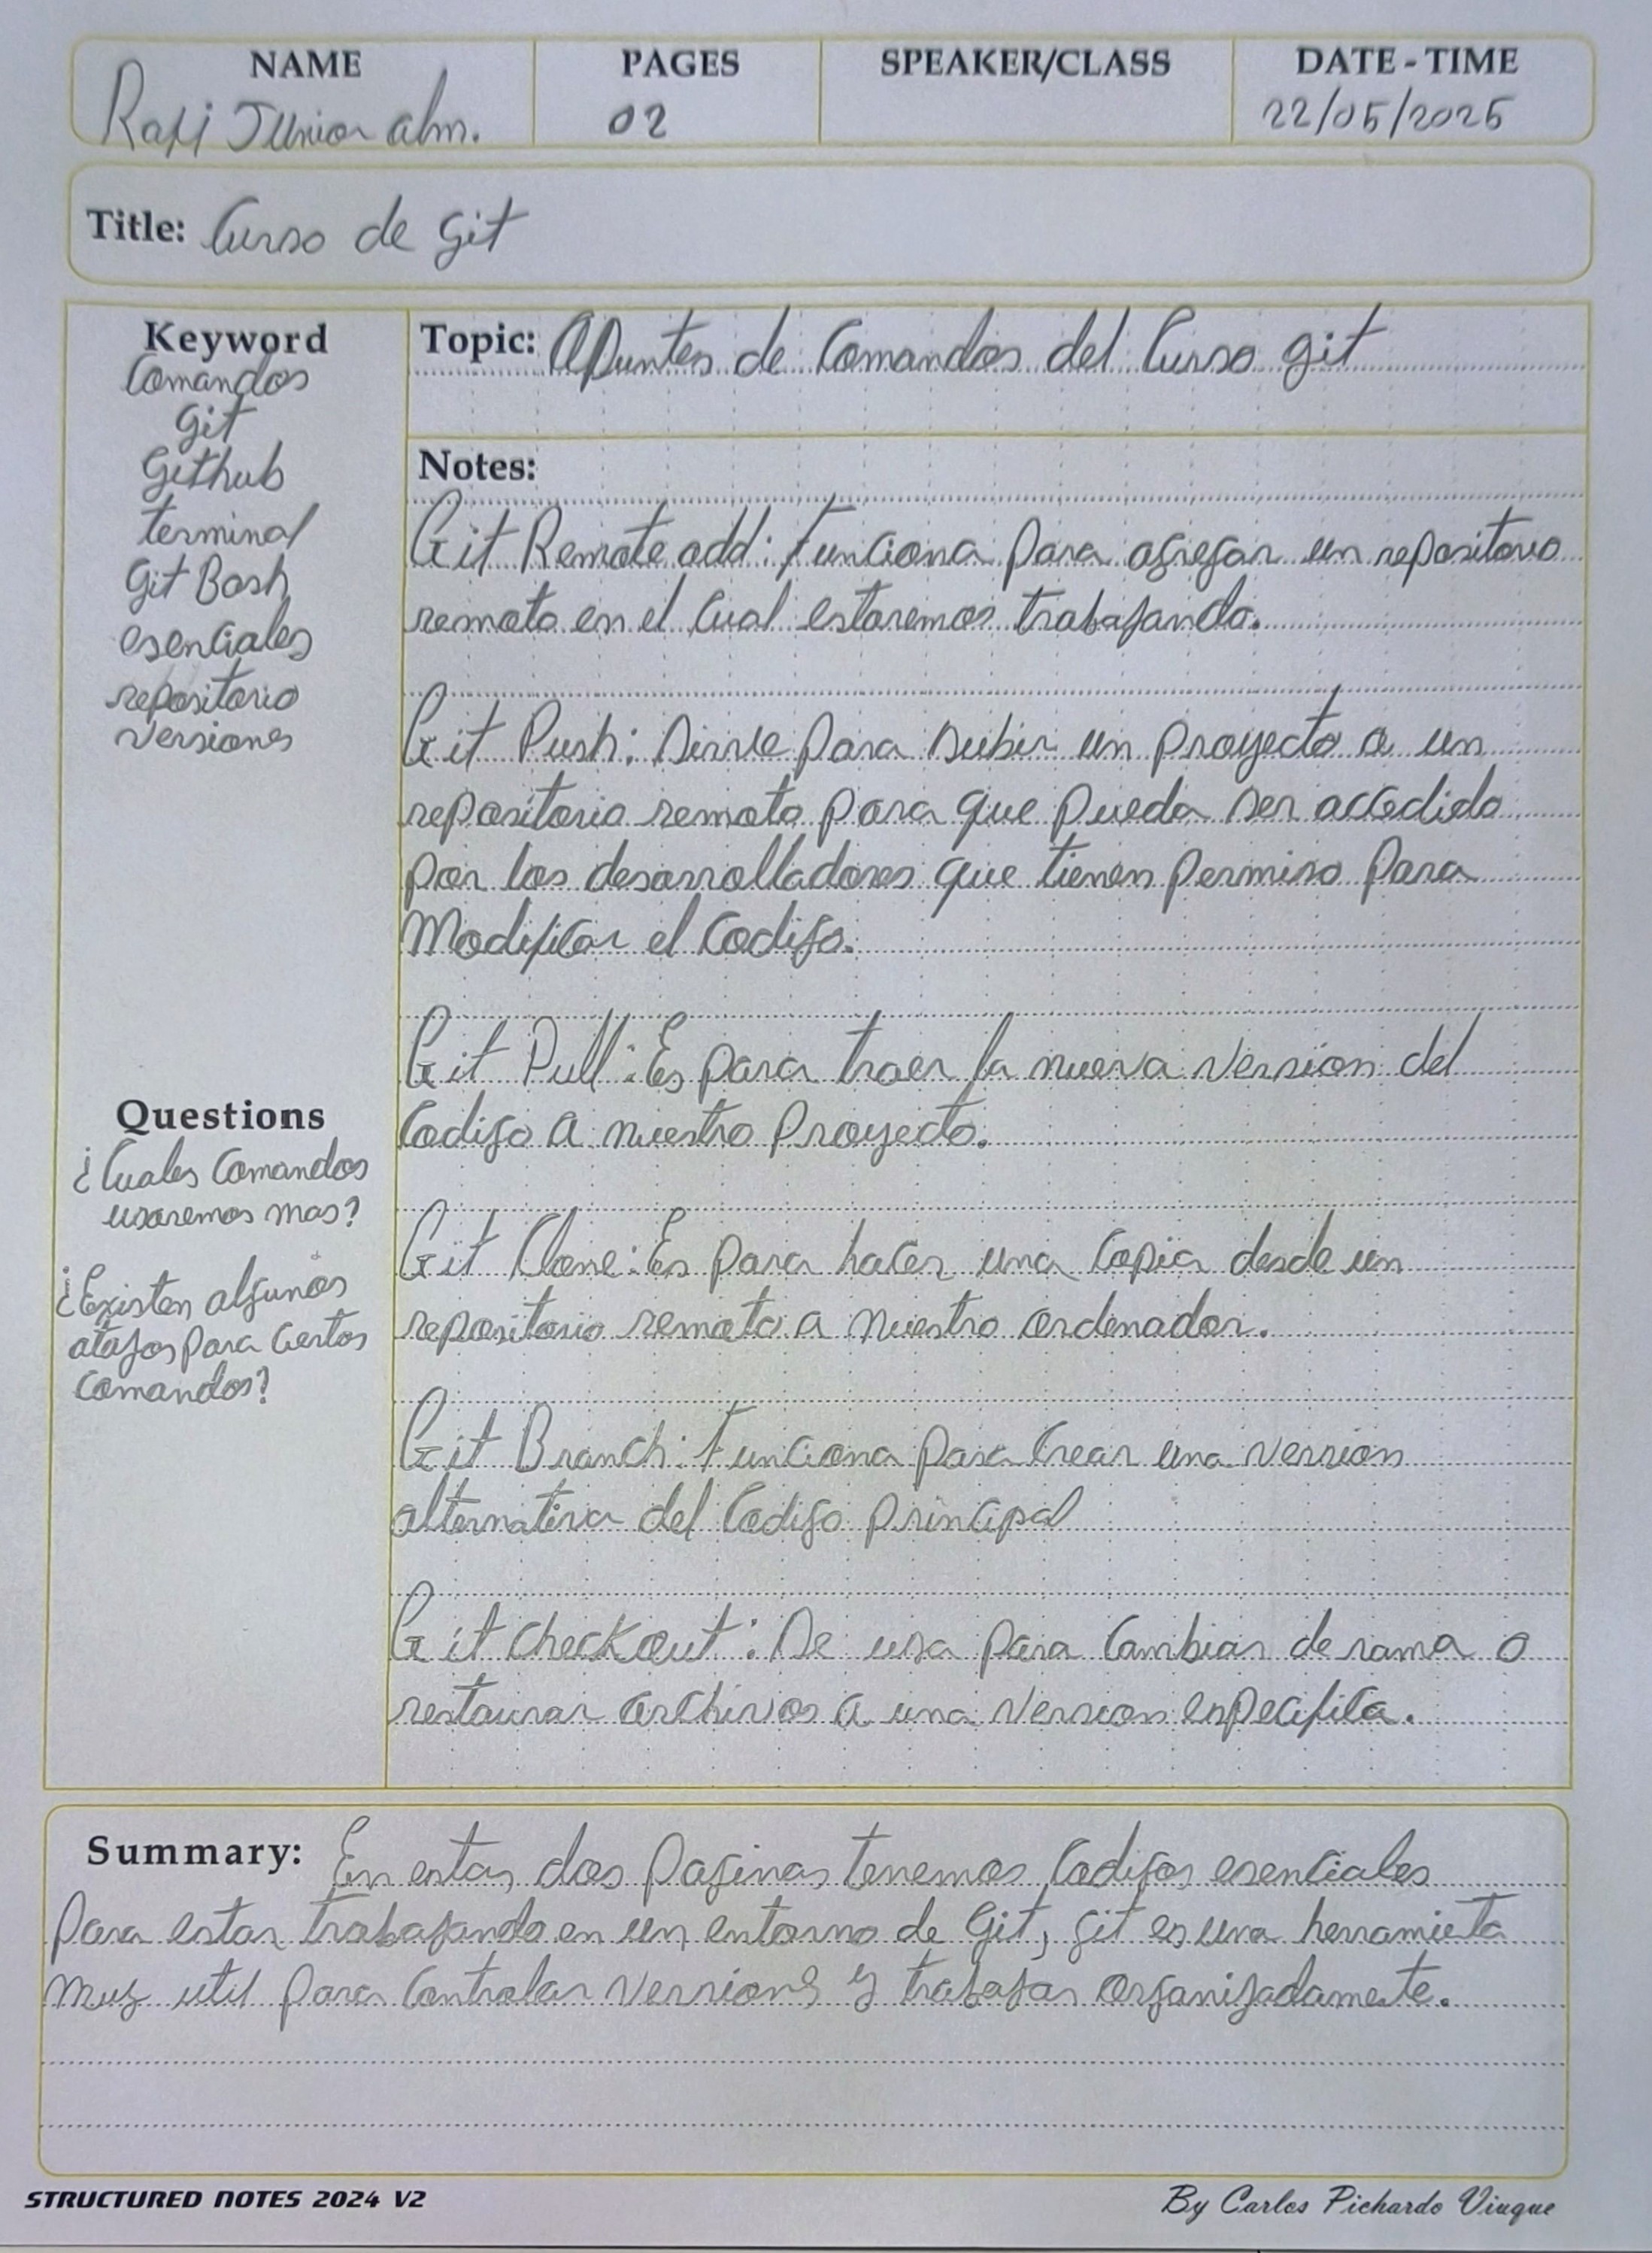 NAME
PAGES
SPEAKER/CLASS
DATE-TIME
Rafi Junior alm.
02
22/05/2025
Title: Curso de git
Keyword
Comandos
git
Github
terminal
git Bash
esenciales
repositorio
versiones
Questions
¿Cuales Comandos
usaremos mas?
¿Existen algunos
atajos para Ciertos
Comandos?
Topic: Apuntes de Comandos del Curso git
Notes:
Git Remote add: Funciona para agregar un repositorio
remoto en el Cual estaremos trabajando.
Git Push: Sirve para subir un proyecto a un
repositorio remoto para que pueda ser accedido
por los desarrolladores que tienen permiso para
Modificar el Codigo.
Git Pull: Es para traer la nueva version del
Codigo a nuestro Proyecto.
Git Clone: Es para hacer una Copia desde un
repositorio remoto a nuestro ordenador.
Git Branch: Funciona para Crear una version
alternativa del Codigo principal
Git checkout: Se usa para Cambiar de rama o
restaurar archivos a una version especifica.
Summary: En estas dos paginas tenemos Codigos esenciales
para estar trabajando en un entorno de Git, git es una herramieta
muy util para Controlar versions y trabajar organizadamete.
STRUCTURED NOTES 2024 V2
By Carlos Pichardo Viuque